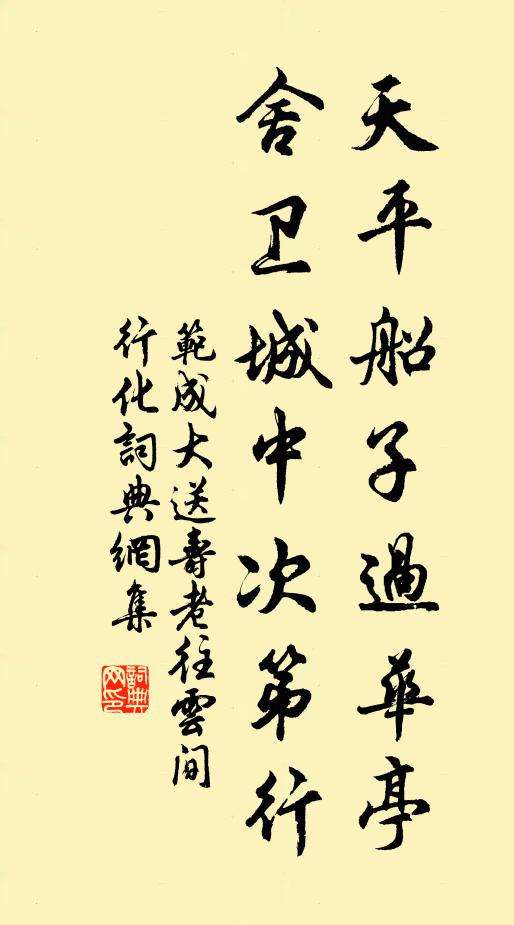 天平船子過華亭
舍卫城中次第行
範成大送壽老往雲间
行化詞典網集
詞典
网印